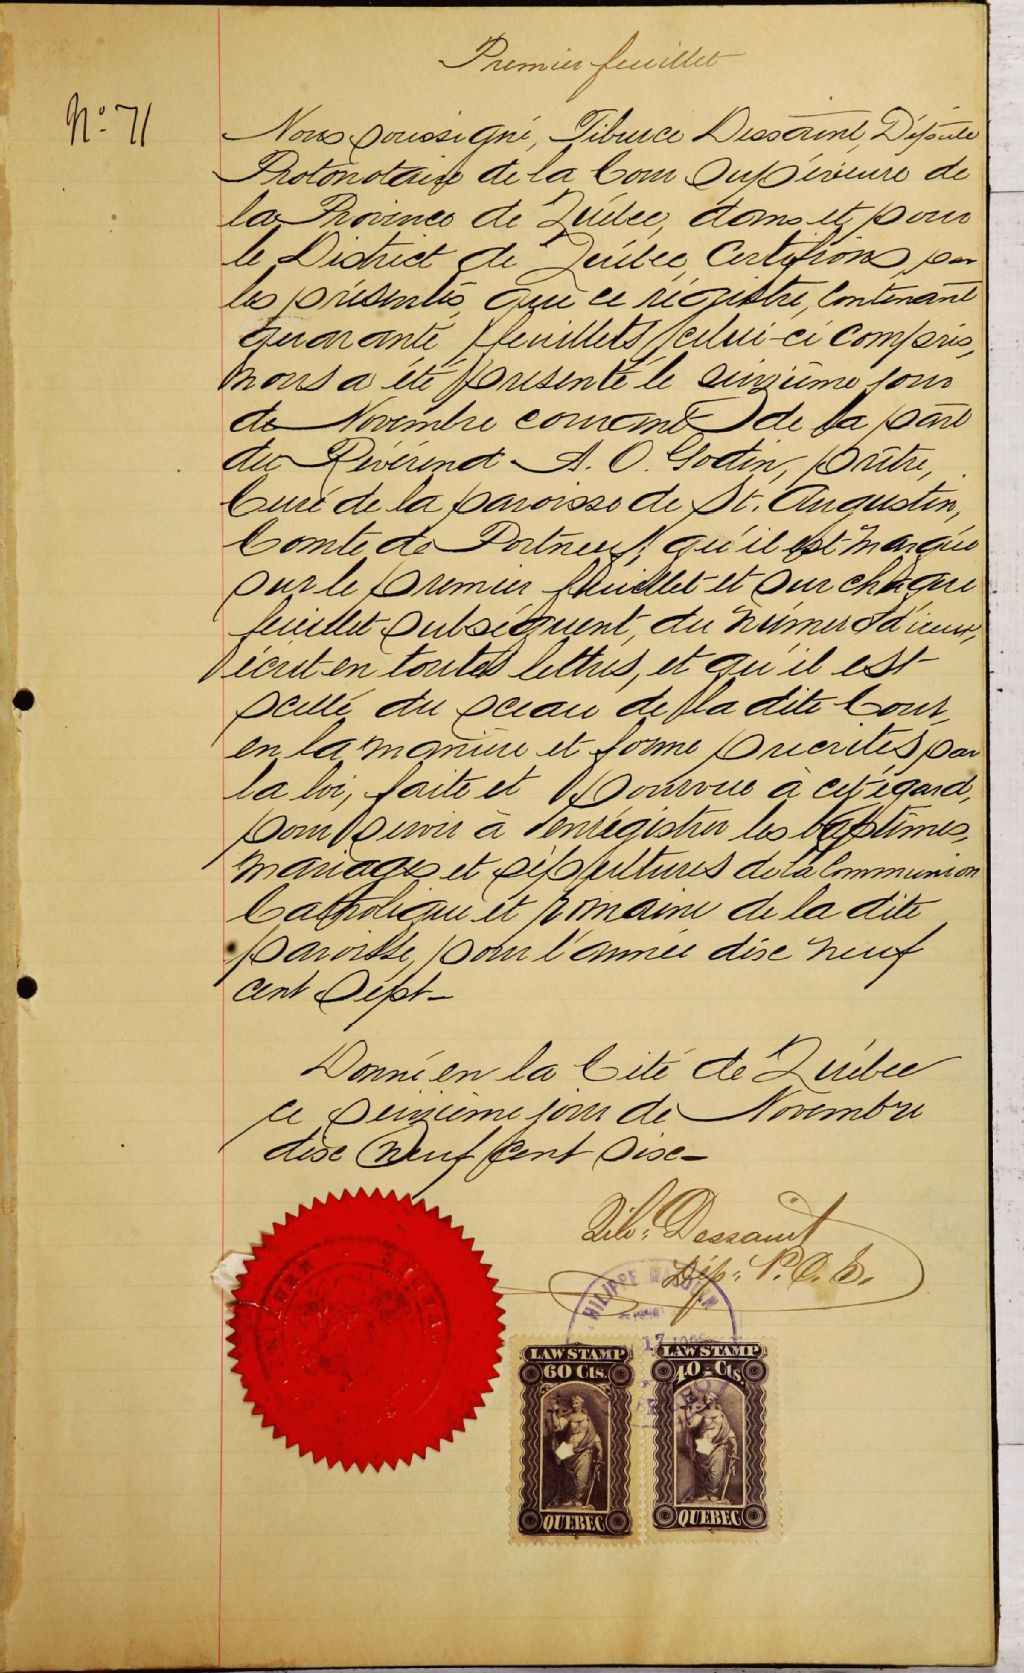 Premier feuillet
No. 71
Nous soussigné, Tiburce Dessaint, Député
Protonotaire de la Cour Supérieure de
la Province de Québec, dans et pour
le District de Québec, Certifions par
les présentes, que ce régistre, Contenant
quarante feuillets, celui-ci compris,
nous a été présenté le seizième jour
de Novembre courant de la part
du Révérend A. O. Godin, prêtre,
Curé de la paroisse de St. Augustin,
Comté de Portneuf; qu'il est marqué
sur le premier feuillet et sur chaque
feuillet subséquent, du numéro d'iceux,
écrit en toutes lettres, et qu'il est
scellé du sceau de la dite Cour,
en la manière et forme prescrites par
la loi, faite et pourvue à cet égard,
pour servir à enrégistrer les baptêmes,
mariages et sépultures de la Communion
Catholique et romaine de la dite
paroisse, pour l'année dix neuf
cent Sept_
Donné en la Cité de Québec
ce seizième jour de Novembre
dix neuf cent six_
Tib. Dessaint
Dép. P. C. S.
LAW STAMP LAW STAMP
60 Cts. 40 - Cts.
QUEBEC QUEBEC